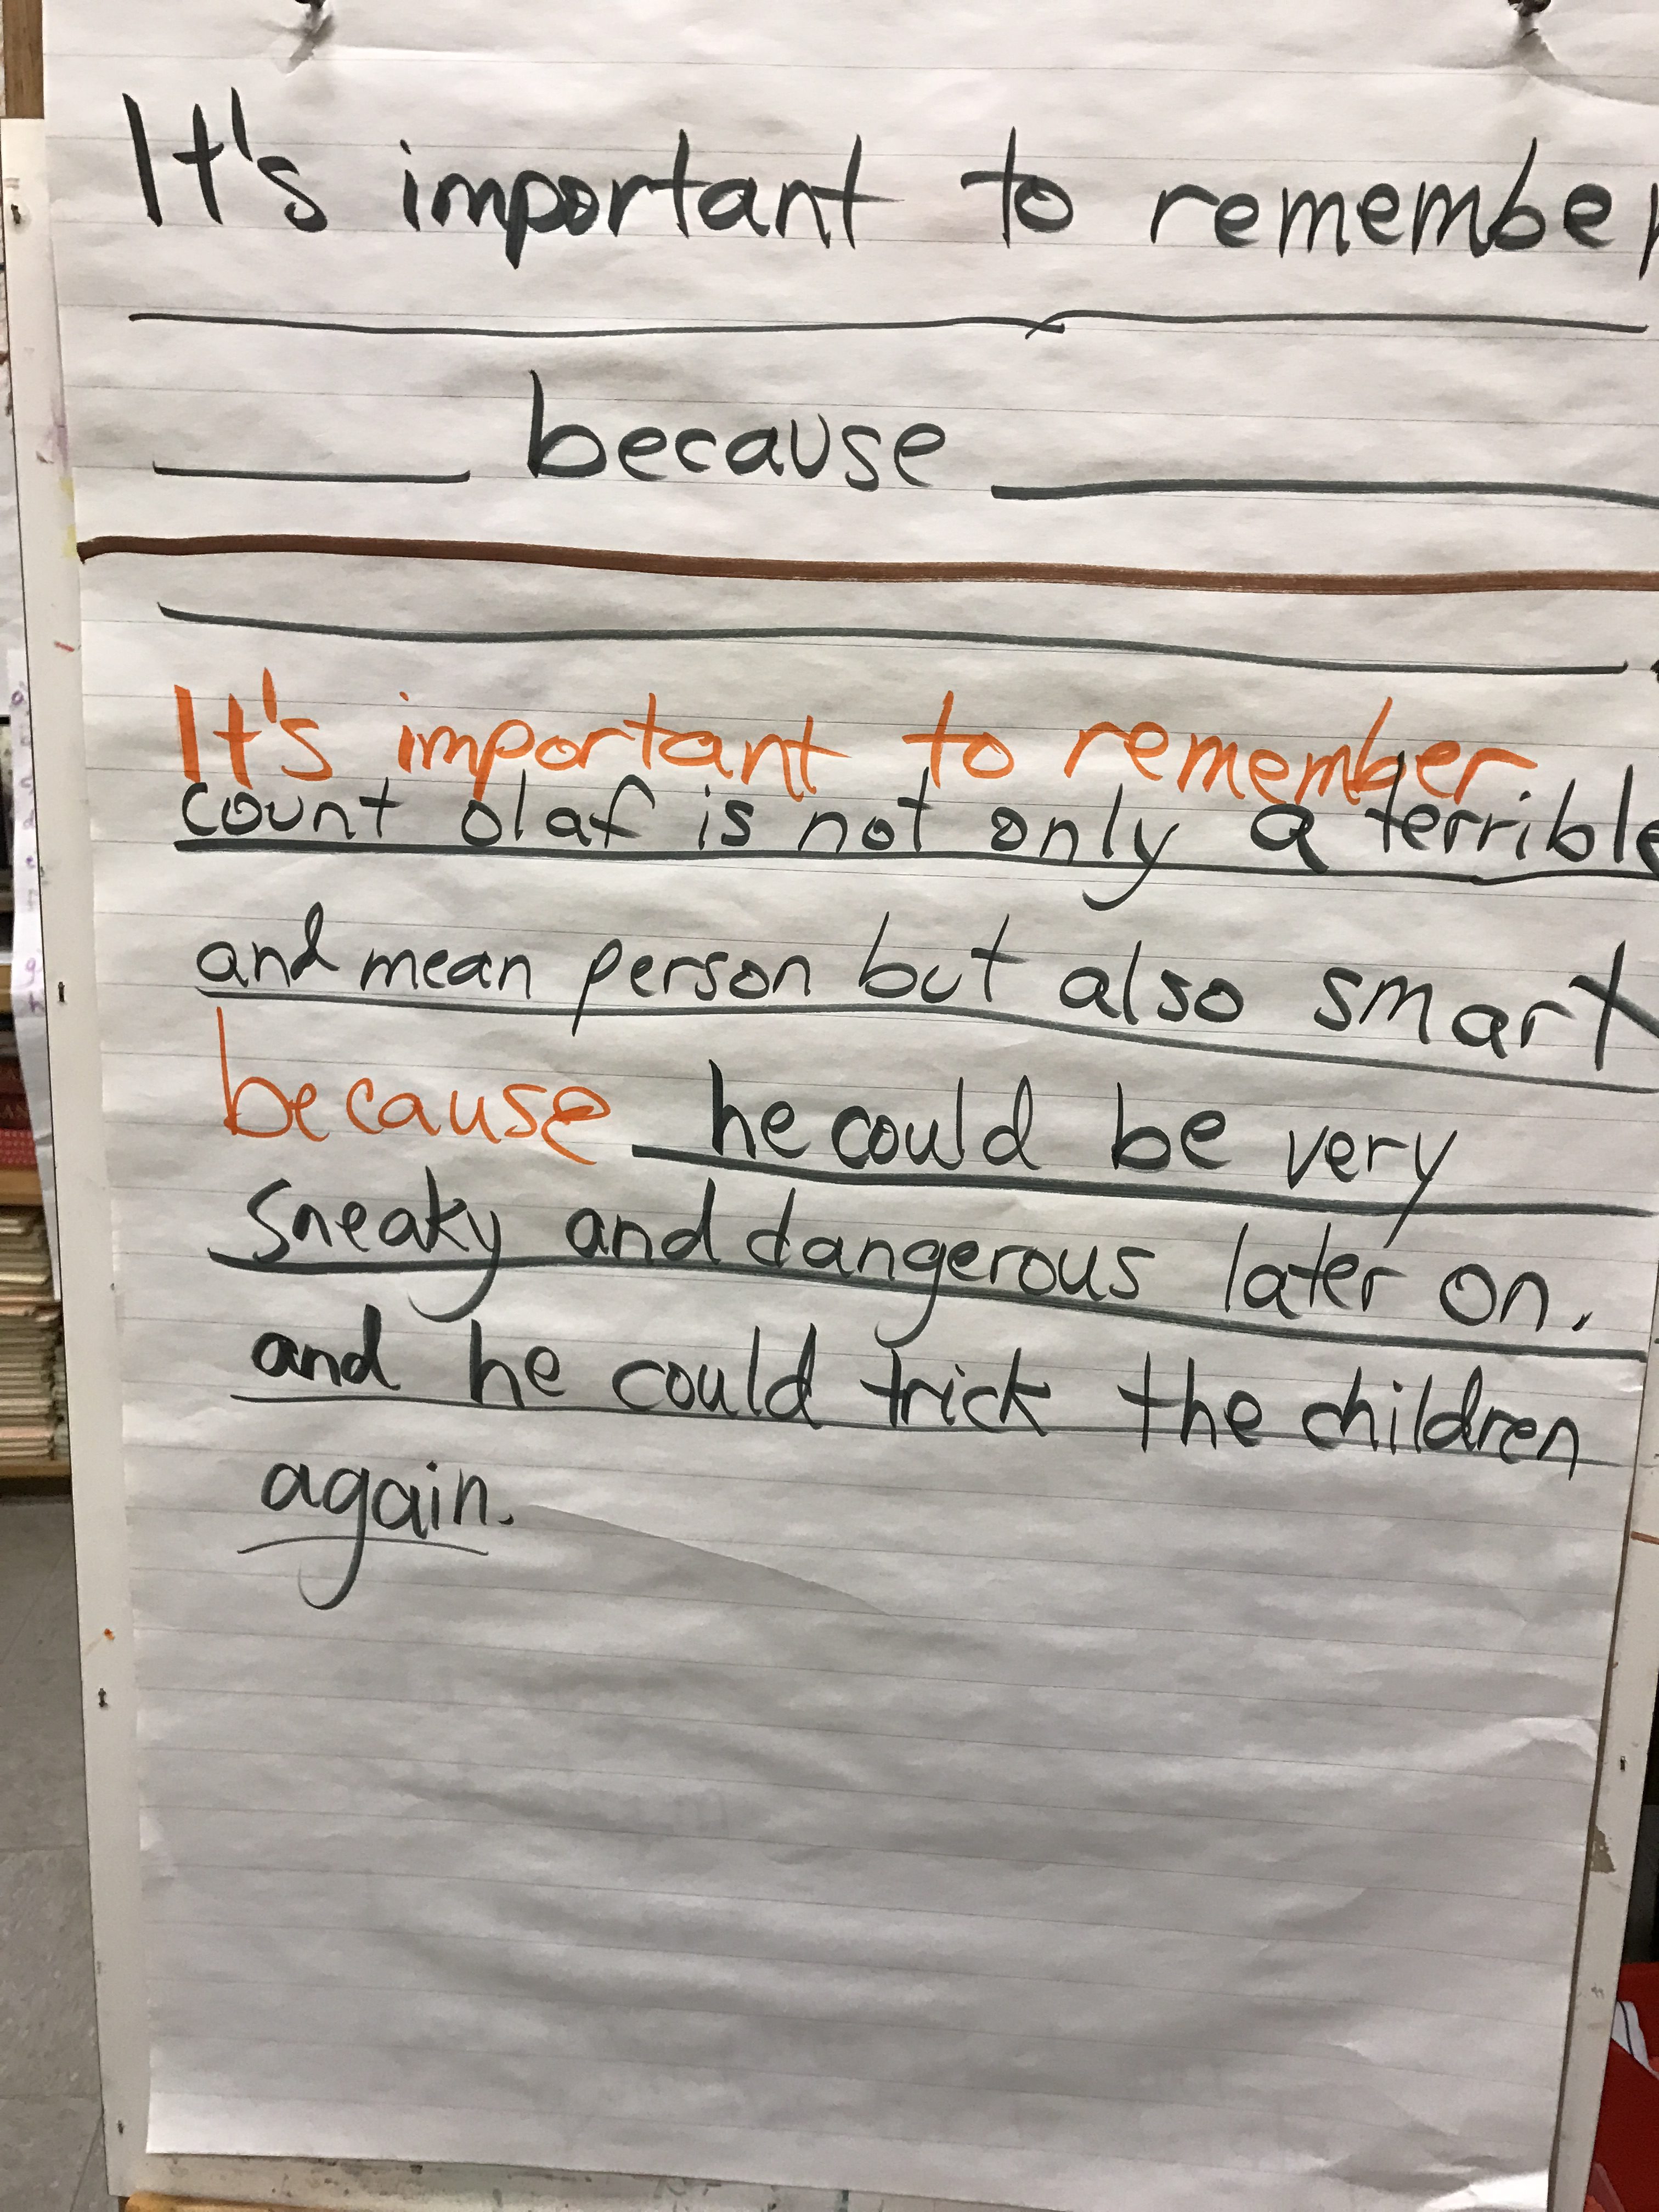 It's important to remember
because
It's important to remember
count olaf is not only a terrible
and mean person but also smart
because he could be very
sneaky and dangerous later on.
and he could trick the children
again.